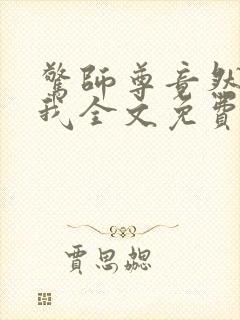 驚師尊竟然
我全文免費
賈思勰